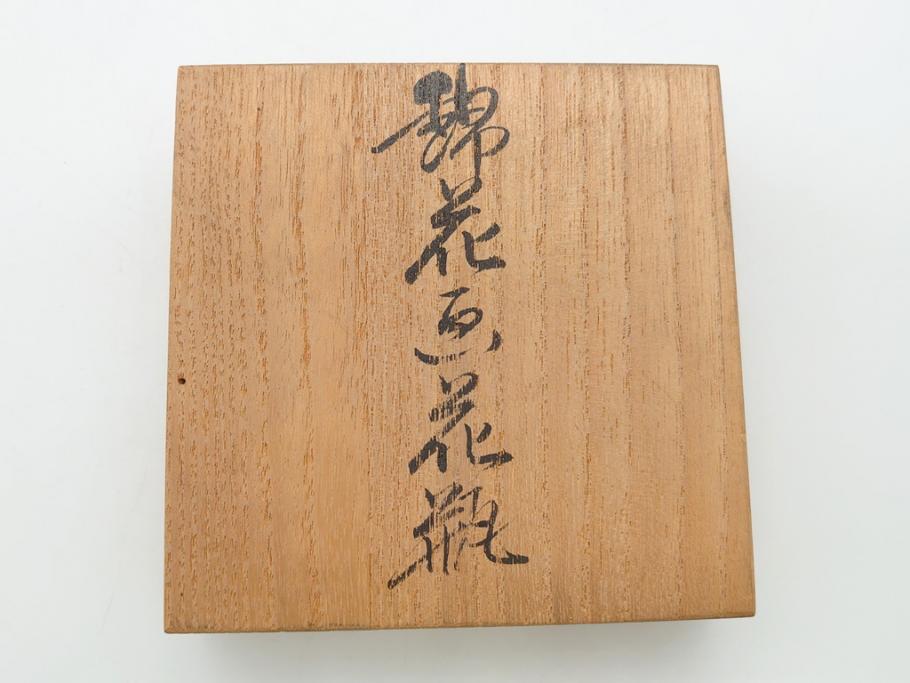 錦花画花瓶